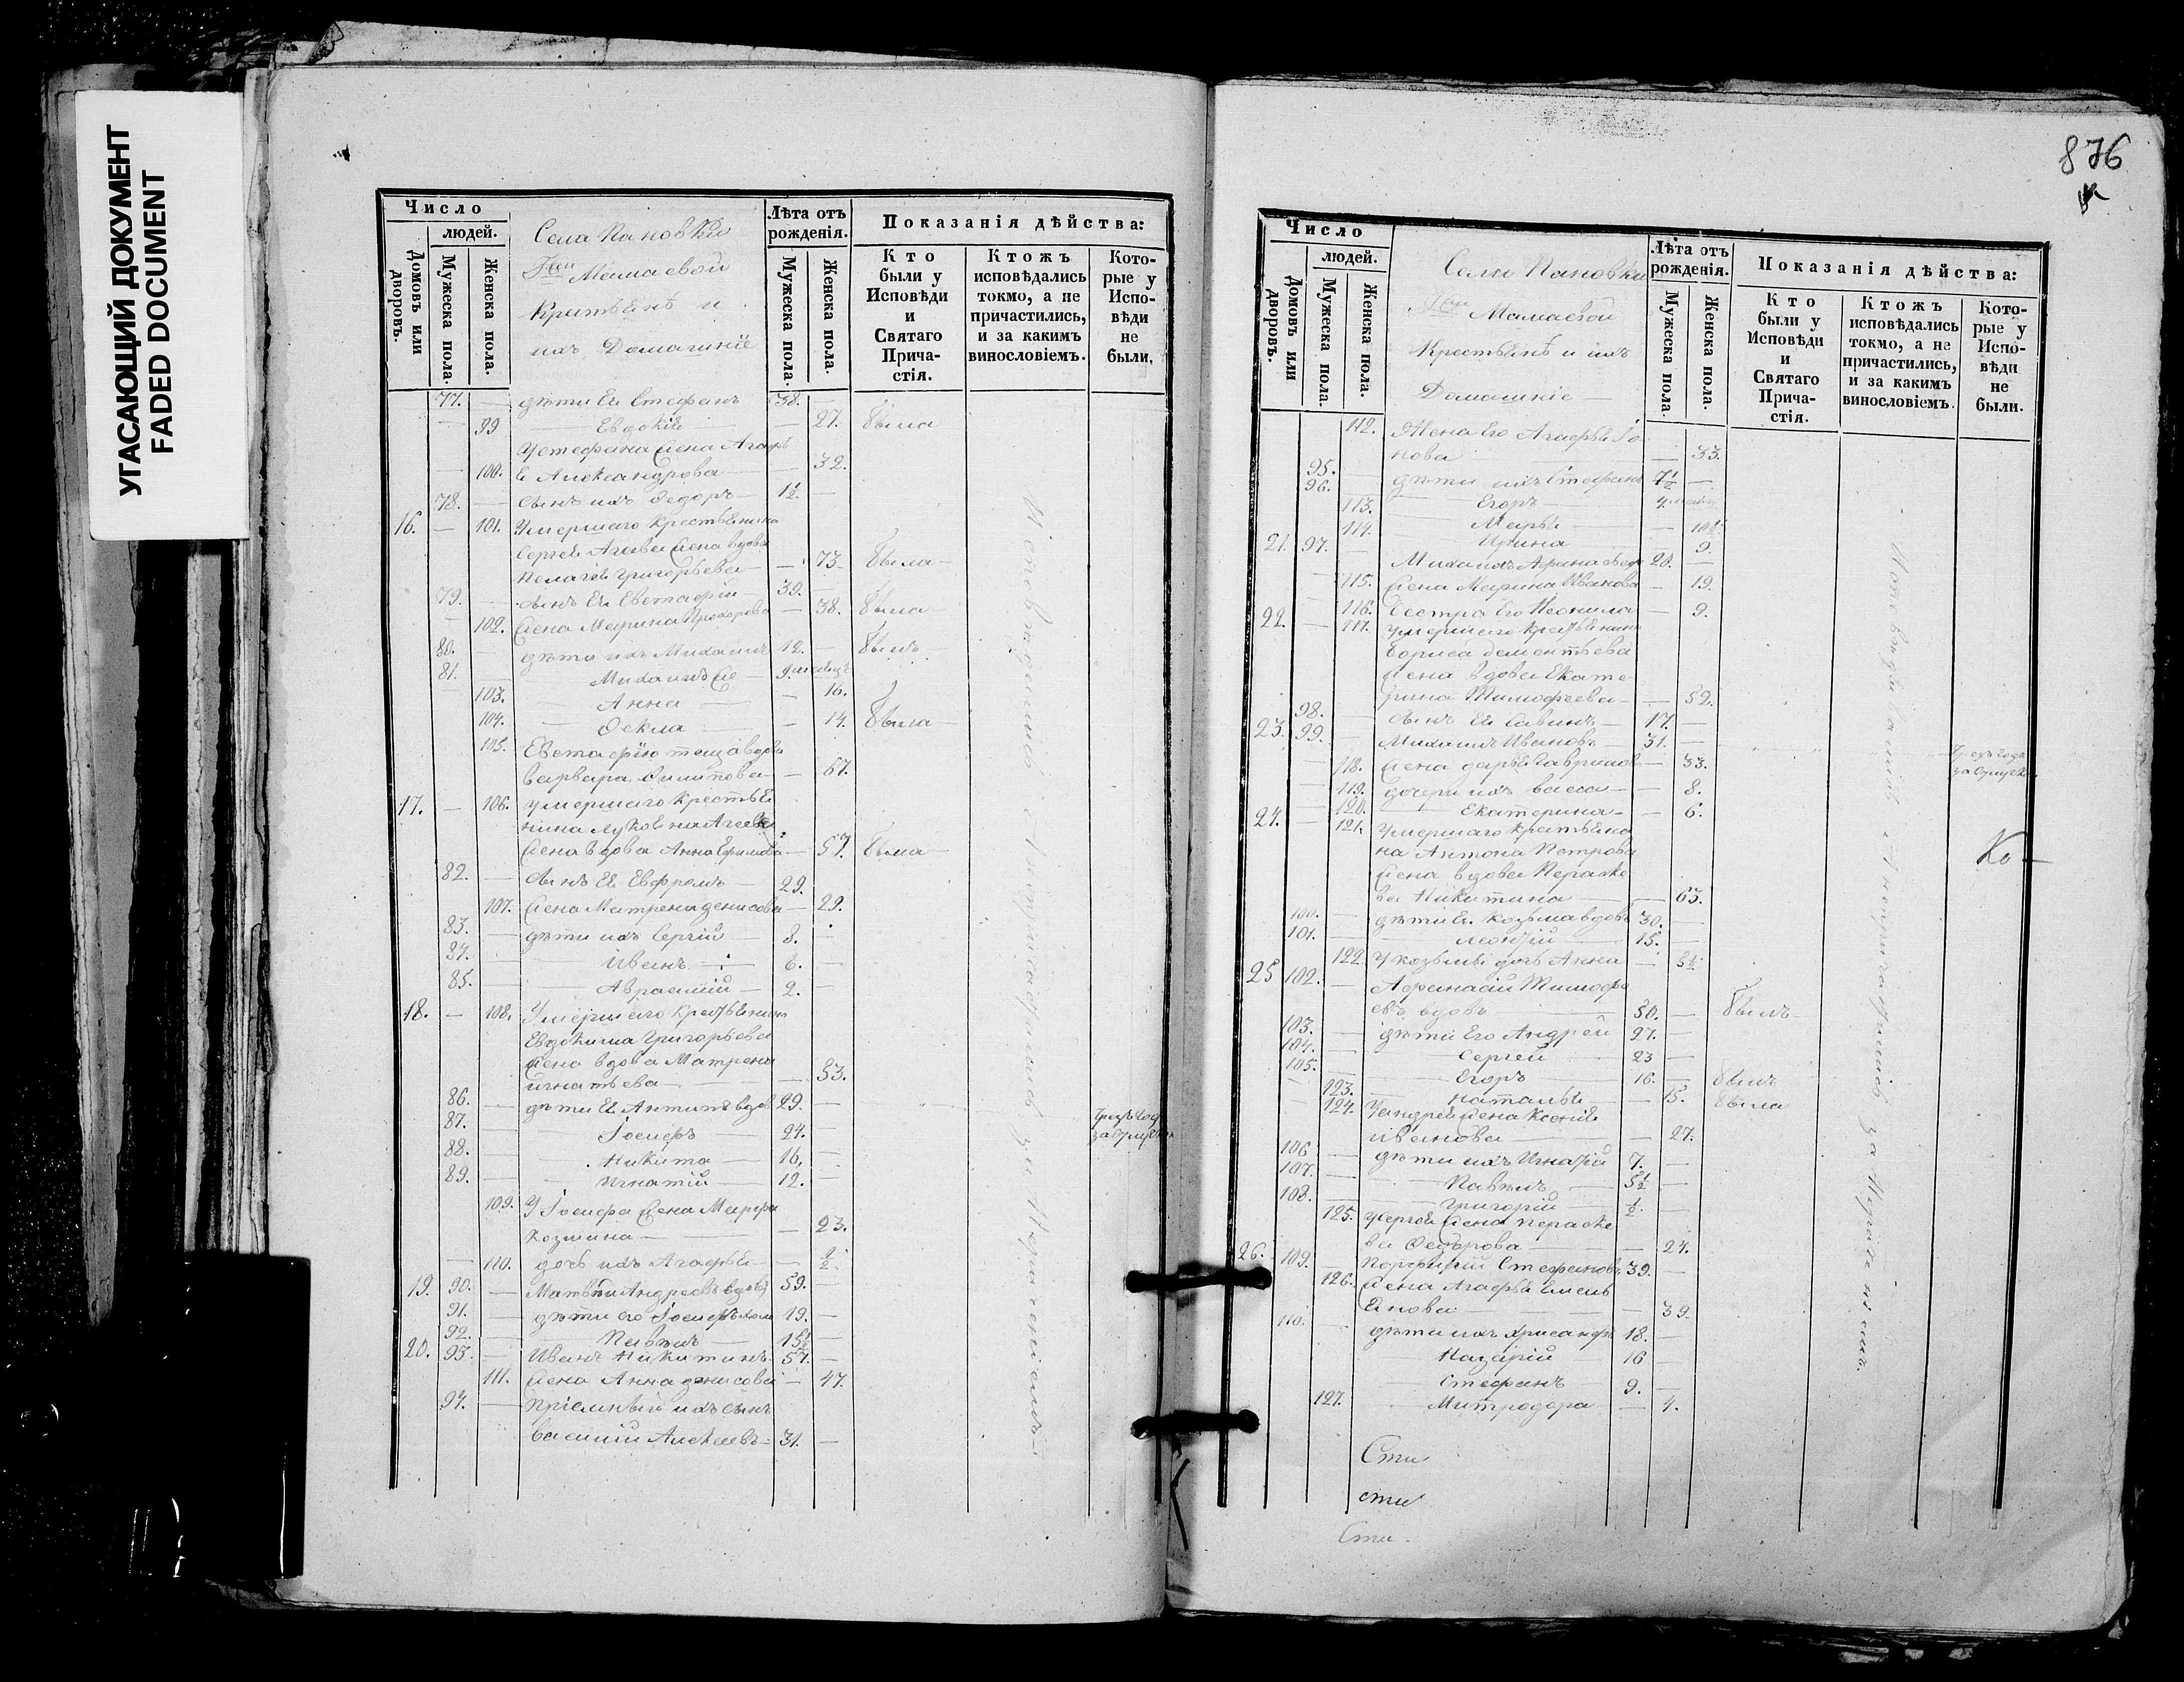 УГАСАЮЩИЙ ДОКУМЕНТ
FADED DOCUMENT
Число
людей.
Домовъ или дворовъ.
Мужеска пола.
Женска пола.
Села Пановки
Гжи Мамаевой
Крестьяне и
ихъ Домашніе
Лѣта отъ рожденія.
Мужеска пола.
Женска пола.
Показанія дѣйства:
Кто были у Исповѣди и Святаго Причастія.
Ктожъ исповѣдались токмо, а не причастились, и за какимъ винословіемъ.
Которые у Исповѣди не были.
77. — дѣти Ея Стефанъ 38. —
— 99 — Евдокія — 27. была
У Стефана жена Агафь
— 100. я Александрова — 32.
78. — сынъ ихъ Федоръ 1½ —
16. — 101. Умершаго крестьянина
Сергея Агава жена вдова
Пелагея Григорьева — 73. была
79. — сынъ Ея Евстафій 39.
102. жена Марина Прохорова — 38. была
80. — дѣти ихъ Михаилъ 12. — былъ
81. — Михаилъ же 9 месяцъ
103. Анна — 16.
104. Фекла — 14. была
105. Евстафію теща вдова
Варвара Филипова — 67.
17. — 106. Умершаго крестья
нина Лукояна Агеева
жена вдова Анна Ефимова — 57. была
82. — сынъ Ея Евфремъ 29.
107. жена Матрена Денисова — 29.
83. — дѣти ихъ Сергій 8. —
84. — Иванъ 6. —
85. — Аврамій 2. —
18. — 108. Умершаго крестьянина
Евдокима Григорьева
жена вдова Матрена
Игнатьева — 53.
86. — дѣти Ея Антипъ вдов 29. —
87. — Іосифъ 24. —
88. — Никита 16. —
89. — Игнатій 12. —
109. У Іосифа жена Марфа
Козмина — 23.
110. дочь ихъ Агафья
19. 90. — Матвѣй Андреевъ вдовъ 59. —
91. — дѣти его Іосифъ холо 19. —
92. — Павелъ 15½ —
20. 93. — Иванъ Никитинъ 57. —
111. жена Анна Денисова — 47.
94. — Пріемный ихъ сынъ
Василій Алексеевъ 31. —
Исповѣдались а непричастились за Нераченіемъ
876
Число
людей.
Домовъ или дворовъ.
Мужеска пола.
Женска пола.
Села Пановки
Гжи Мамаевой
Крестьянѣ и ихъ
Домашніе
Лѣта отъ рожденія.
Мужеска пола.
Женска пола.
Показанія дѣйства:
Кто были у Исповѣди и Святаго Причастія.
Ктожъ исповѣдались токмо, а не причастились, и за какимъ винословіемъ.
Которые у Исповѣди не были.
112. Жена Его Агафья
нова — 33.
95. — дѣти ихъ Стефанъ 7½ —
96. Егоръ
113. Марья — 10½
114. Ирина — 9.
21. 97. — 20. —
115. жена Марина Иванова — 19.
116. Сестра Его Неонила — 9.
22. — 117. Умершаго крестьянина
Бориса Дементьева
жена вдова Екате
рина Тимофеева — 52.
98. — сынъ Ея Савинъ 17. —
23. 99. — Михаилъ Ивановъ 31. —
118. жена Дарья Гаврилова — 33.
119. дочери ихъ Васса — 8.
120. Екатерина — 6.
24. — 121. Умершаго крестьяни
на Антона Петрова
жена вдова Параске
ва Никитина — 63.
100. — дѣти Ея Козьма вдовъ 30. —
101. — Леонтій 15. —
122. У Козьмы дочь Анна — 5½
25 102. — Афанасій Тимофе
евъ вдовъ 50. — былъ
103. — дѣти Его Андрей 27. —
104. — Сергей 23 —
105. — Егоръ 16. — былъ
123. Наталья — 15. была
124. У Андрея жена Ксенія
Иванова — 27.
106 — дѣти ихъ Игнатій 7. —
107. — Павелъ 5½ —
108. — Григорій ½ —
125. У Сергея жена Параске
ва Федорова — 24.
26. 109. — Порфирій Стефановъ 39. —
126. жена Агафья Емель
янова — 39.
110. — дѣти ихъ Хрисанфъ 18. —
Назарій 16 —
Стефанъ 9. —
127. Митродора — 4.
Исповѣдались а непричастились за
Ко
Сти
сти
Сти.